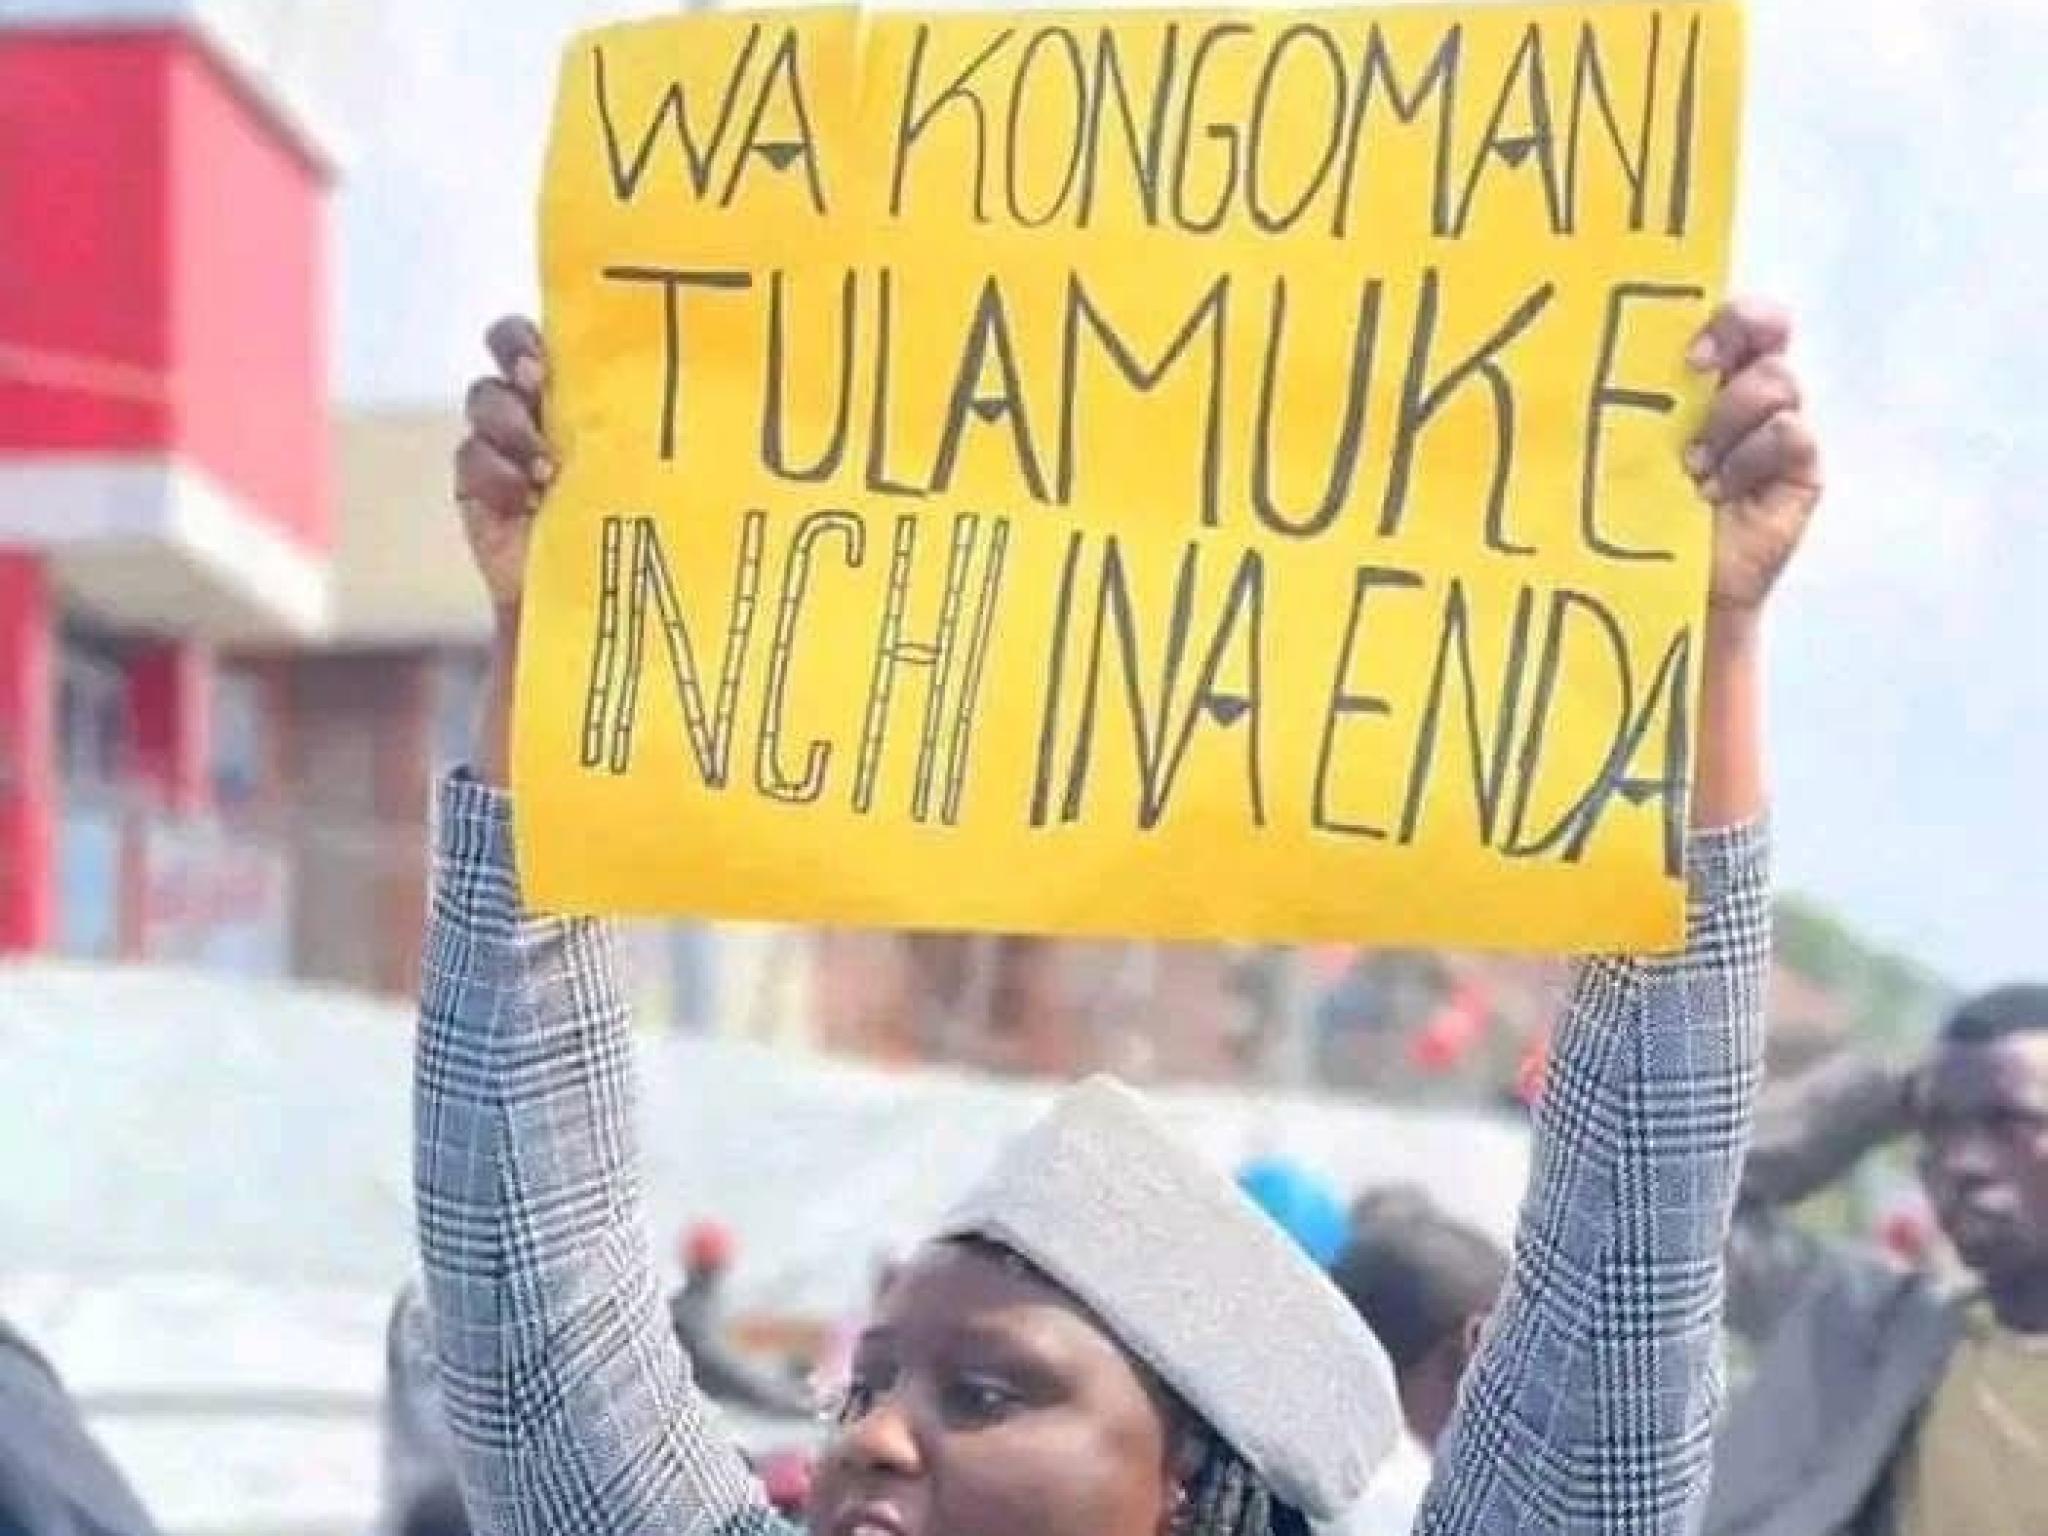 WA KONGOMANI
TULAMUKE
INCHI INA ENDA